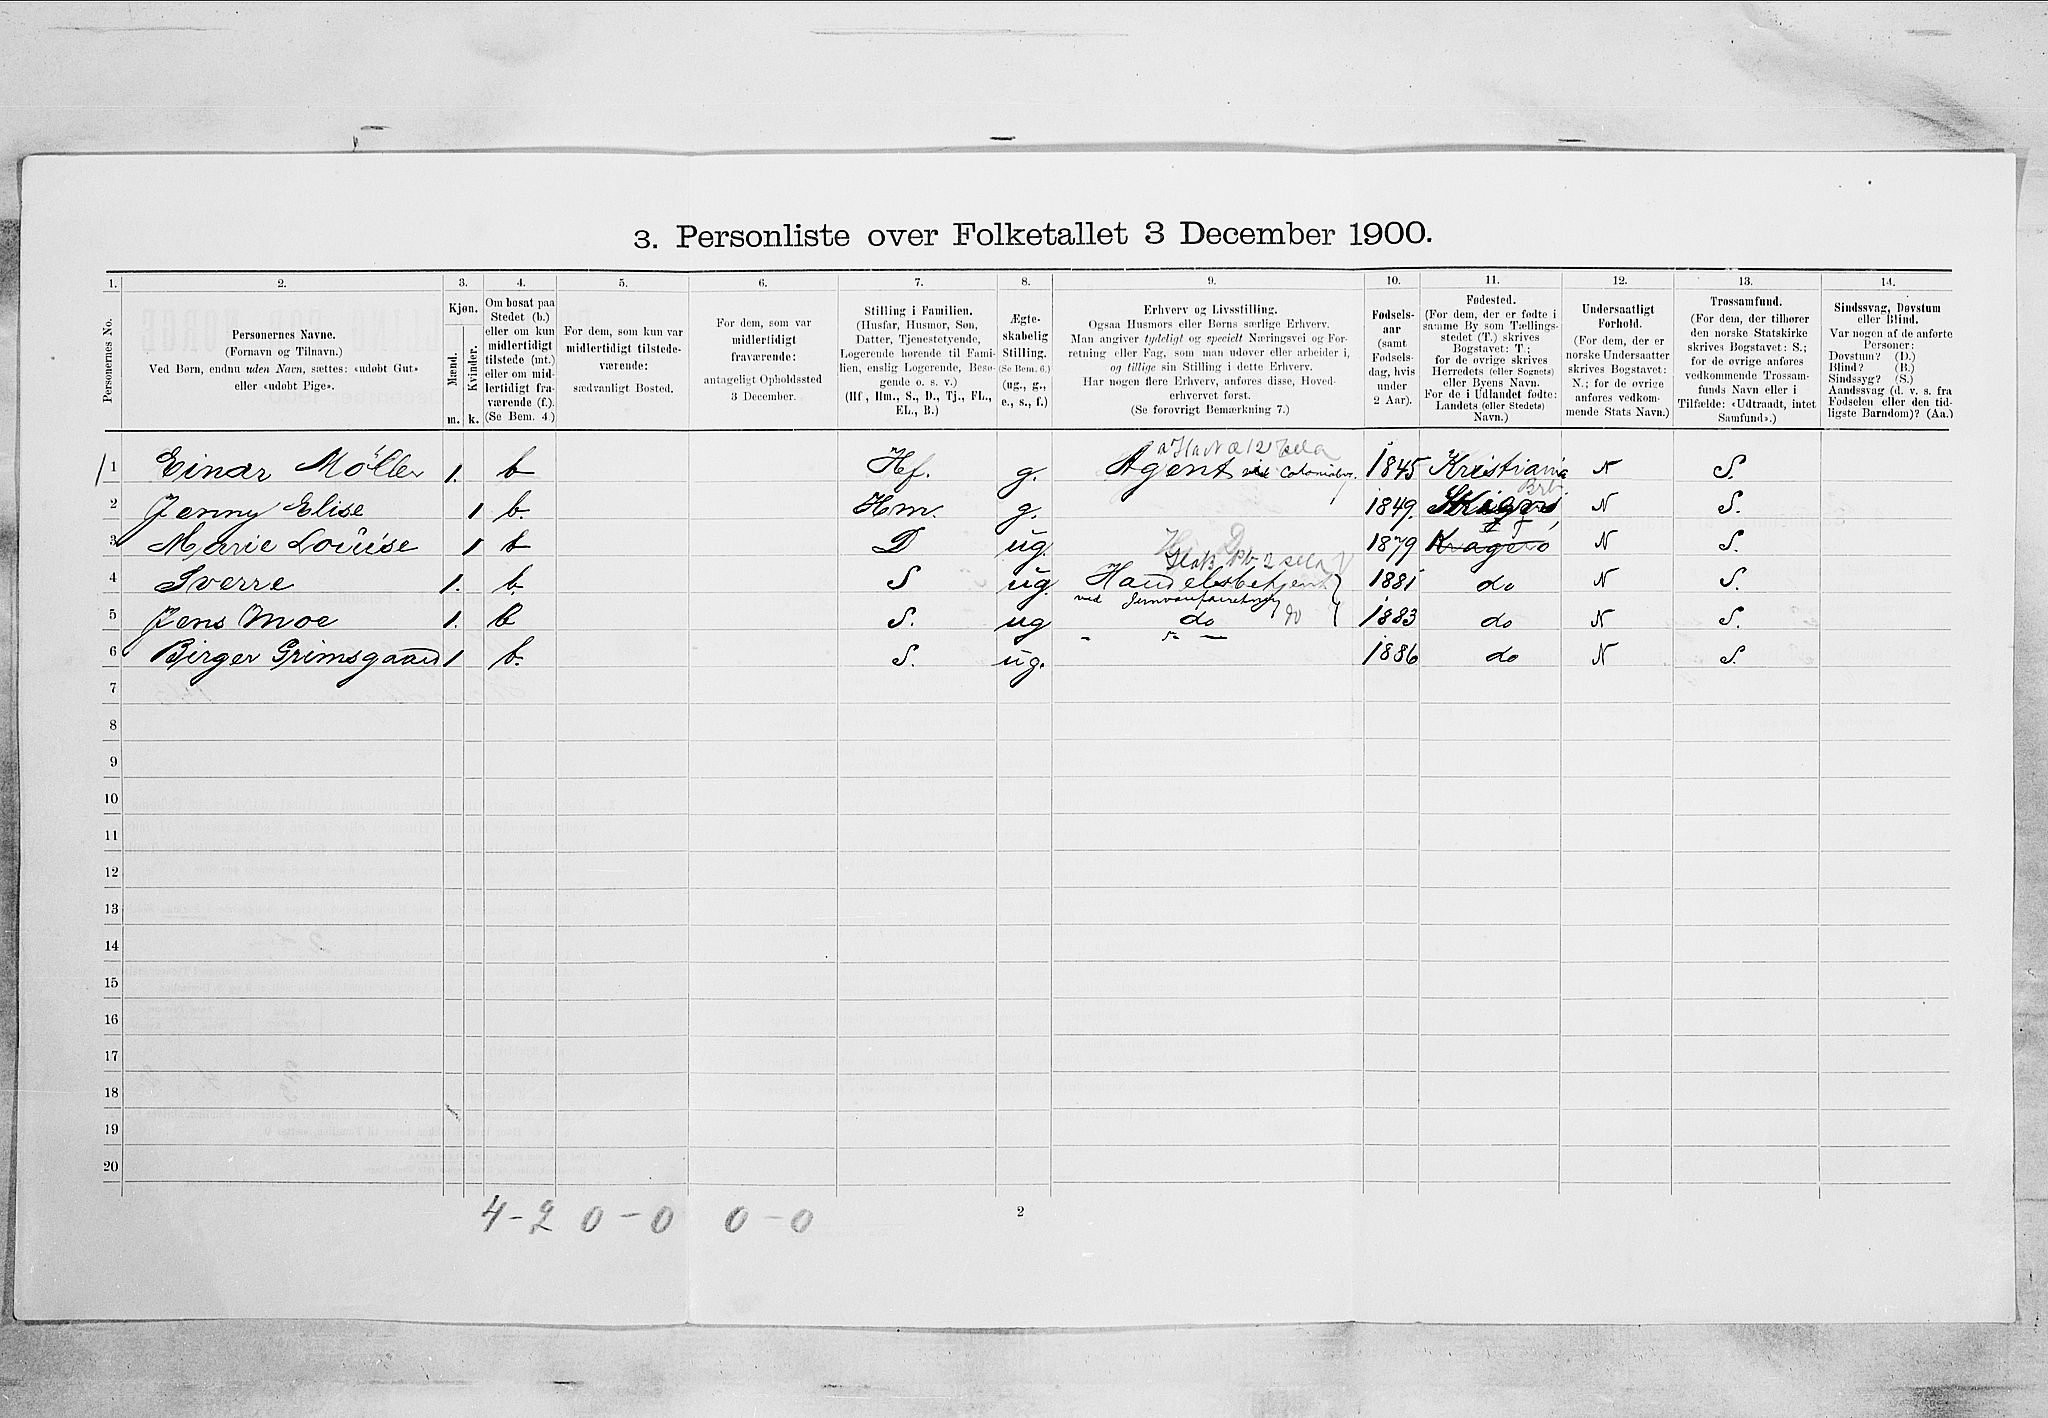 3. Personliste over Folketallet 3 December 1900.
1. 2. 3. 4. 5. 6. 7. 8. 9. 10. 11. 12. 13. 14.
Personernes No.
Personernes Navne.
(Fornavn og Tilnavn.)
Ved Børn, endnu uden Navn, sættes: «udøbt Gut»
eller «udøbt Pige».
Kjøn.
Mænd.
Kvinder.
m. k.
Om bosat paa
Stedet (b.)
eller om kun
midlertidigt
tilstede (mt.)
eller om mid-
lertidigt fra-
værende (f.).
(Se Bem. 4.)
For dem, som kun var
midlertidigt tilstede-
værende:
sædvanligt Bosted.
For dem, som var
midlertidigt
fraværende:
antageligt Opholdssted
3 December.
Stilling i Familien.
(Husfar, Husmor, Søn,
Datter, Tjenestetyende,
Logerende hørende til Fami-
lien, enslig Logerende, Besø-
gende o. s. v.)
(Hf., Hm., S., D., Tj., FL.,
EL., B.)
Ægte-
skabelig
Stilling.
(Se Bem. 6.)
(ug., g.,
e., s., f.)
Erhverv og Livsstilling.
Ogsaa Husmors eller Børns særlige Erhverv.
Man angiver tydeligt og specielt Næringsvei og For-
retning eller Fag, som man udøver eller arbeider i,
og tillige sin Stilling i dette Erhverv.
Har nogen flere Erhverv, anføres disse, Hoved-
erhvervet først.
(Se forøvrigt Bemærkning 7.)
Fødsels-
aar
(samt
Fødsels-
dag, hvis
under
2 Aar).
Fødested.
(For dem, der er fødte i
samme By som Tællings-
stedet (T.) skrives
Bogstavet: T;
for de øvrige skrives
Herredets (eller Sognets)
eller Byens Navn.
For de i Udlandet fødte:
Landets (eller Stedets)
Navn.)
Undersaatligt
Forhold.
(For dem, der er
norske Undersaatter
skrives Bogstavet:
N.; for de øvrige
anføres vedkom-
mende Stats Navn.)
Trossamfund.
(For dem, der tilhører
den norske Statskirke
skrives Bogstavet: S.;
for de øvrige anføres
vedkommende Trossam-
funds Navn eller i
Tilfælde: «Udtraadt, intet
Samfund».)
Sindssvag, Døvstum
eller Blind.
Var nogen af de anførte
Personer:
Døvstum? (D.)
Blind? (B.)
Sindssyg? (S.)
Aandssvag (d. v. s. fra
Fødselen eller den tid-
ligste Barndom)? (Aa.)
1 Einar Möller 1. b Hf. g. Agent 1845 Kristiania N S.
2 Jenny Elise 1 b. Hm. g. 1849. N S.
3 Marie Louise 1 b D ug. 1879 Kragerø T N S.
4 Sverre 1. b. S ug. Handelsbetjent 1881 do N S.
ved
5 Jens Moe 1. b S. ug do 1883 do N S.
6 Birger Grimsgaard 1 b. S. ug. 1886 do N S.
7
8
9
10
11
12
13
14
15
16
17
18
19
20
4-2 0-0 0-0
2